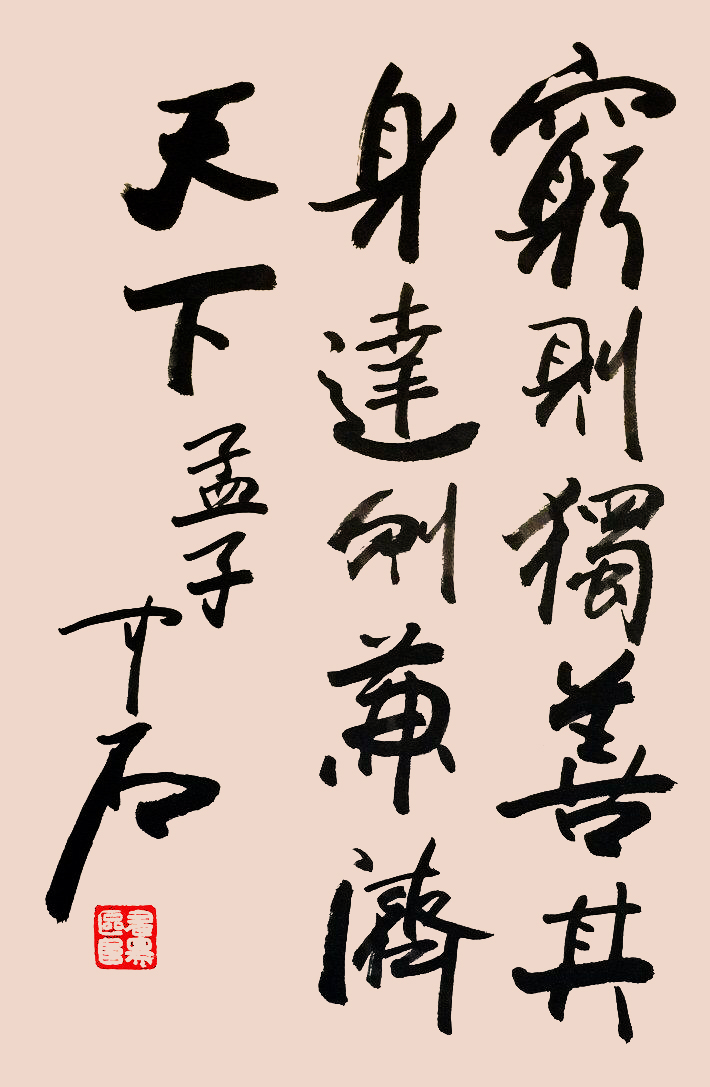 窮則獨善其
身達則兼濟
天下
孟子
中石